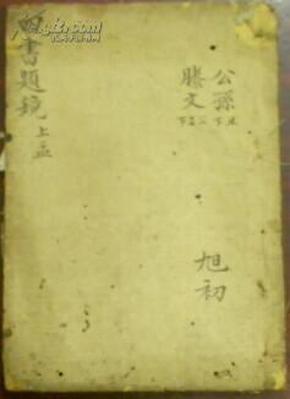 公孫丑下
滕文公上下
旭初
四書題鏡 上孟